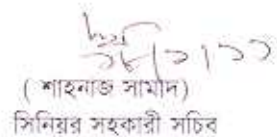 ( শাহনাজ সামাদ)
সিনিয়র সহকারী সচিব